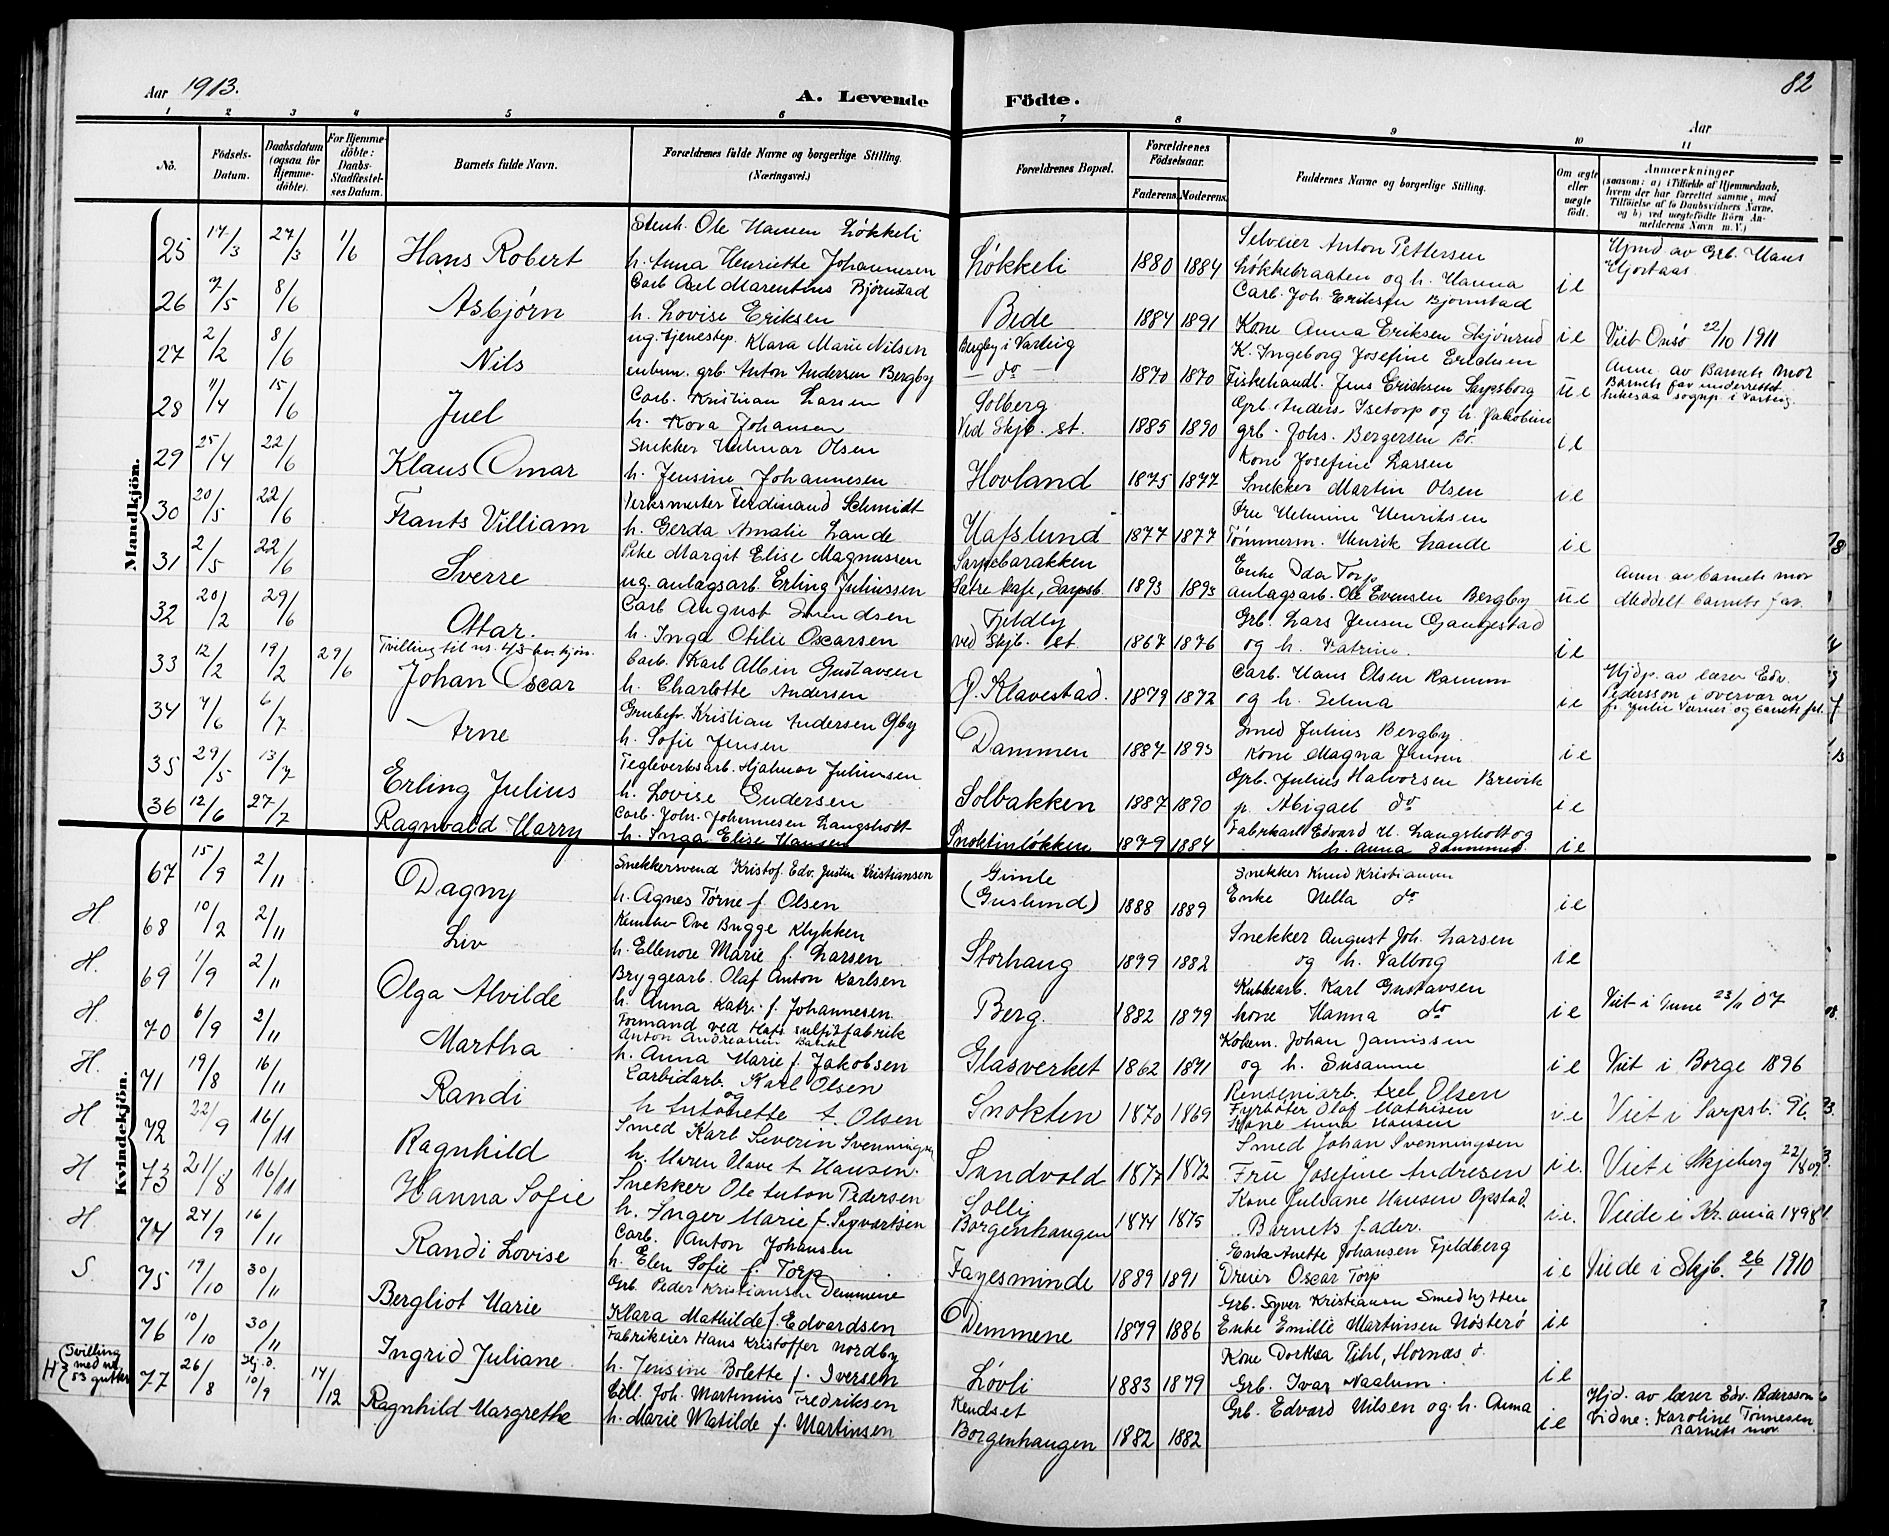 Aar 1913.
A. Levende Födte.
82
Aar
1 2 3 4 5 6 7 8 9 10 11
No.
Födsels-Datum.
Daabsdatum (ogsaa for Hjemmedöbte).
For Hjemmedöbte: Daabs-Stadfæstelses Datum.
Barnets fulde Navn.
Forældrenes fulde Navne og borgerlige Stilling. (Næringsvei.)
Forældrenes Bopæl.
Forældrenes Födselsaar.
Faderens. Moderens.
Faddernes Navne og borgerlige Stilling.
Om ægte eller uægte födt.
Anmærkninger
(saasom: a) i Tilfælde af Hjemmedaab, hvem der har forrettet samme, med Tilföielse af to Daabsvidners Navne, og b) ved uægtefödte Börn Anmelderens Navn m. V.)
Mandkjön.
25 17/3 27/3 1/6 Hans Robert
Stenh. Ole Hansen Løkkeli
h. Anna Henriette Johannesen
Løkkeli 1880 1884
Selveier Anton Pettersen
Løkkebraaten og h. Hanna
ie
Hjmd av Grb. Hans
Hjortaas
26 7/5 8/6 Asbjørn
Carb Axel Marentius Bjørnstad
h. Lovise Eriksen
Bede 1884 1891
Carb. Joh. Eriksen Bjørnstad
Kone Anna Eriksen Skjønrud
ie Viet Onsø 22/10 1911
27 2/2 8/6 Nils
ug. tjenestep. Klara Marie Nilsen
unbm. grb Anton Andersen Bergby
Bergby i Varteig
— do — 1870 1870
K. Ingeborg Josefine Eriksen
Fiskehandl. Jens Eriksen Sarpsborg
ue
Anm. av Barnets Mor
Barnets far underrettet
sognp. i Varteig.
28 11/4 15/6 Juel
Carb. Kristian Larsen
h. Kova Johansen
Solberg
Ved Skjb. st. 1885 1890
Grb. Anders Isetorp og h. Jakobine
grb. Johs. Bergersen Bø.
ie
29 25/4 22/6 Klaus Omar
Snekker Hilmar Olsen
h. Jensine Johannesen
Hovland 1875 1877
Kone Josefine Larsen
Snekker Martin Olsen
ie
30 20/5 22/6 Frants Villiam
Verksmester Ferdinand Schmidt
h. Gerda Amalie Lande
Hafslund 1877 1877
Fru Henriksen
Tømmerm. Henrik Lande
ie
31 2/5 22/6 Sverre
Pike Margit Elise Magnussen
ug. anlægsarb. Erling Juliussen
Sarpebarakken
Sætre kafe, Sarpsb. 1893 1893
Enke Ida Torp
anlagsarb. Ole Evensen Bergby
ue
Anm av barnets mor
Meddelt barnets far.
32 20/2 29/6 Ottar.
Carb August Svendsen
h. Inga Otilie Oscarsen
Fjeldly
ved Skjb. st. 1867 1876
Grb. Lars Jensen Gangestad
og h. Katrine.
ie
33 12/2 19/2 29/6 Tvilling til nr. 43 kv. kjøn.
Johan Oscar
Carb. Karl Albin Gustavsen
h. Charlotte Andersen
Ø. Klavestad. 1879 1872
Carb. Hans Olsen Ramum
og h. Selma
ie
Hjdp. av lærer Edv.
Pedersson i overvær av
f. Julie Varnes og barnets far.
34 7/6 6/7 Arne
Grubefr. Kristian Andersen Opby
h. Sofie Jensen
Dammen 1887 1893
Smed Julius Bergby
Kone Magna Jensen
ie
35 29/5 13/7 Erling Julius
Tegleverksarb. Hjalmar Juliussen
h. Lovise Gudersen
Solbakken 1887 1890
Grb. Julius Halvorsen Brevik
p. Abigael do
ie
36 12/6 27/7 Ragnvald Harry
Carb. Johs. Johannesen Langsholt
h. Inga Elise Hansen
Snoktinløkken 1879 1884
Fabrkarl Edvard H. Langsholt og
h. Anna
ie
Kvindekjön.
67 15/9 2/11 Dagny
Snekkersvend Kristof. Edv. Justin Kristiansen
h. Agnes Tørne f. Olsen
Gimle
(Guslund) 1888 1889
Snekker Knud Kristiansen
Enke Nella do
ie
H 68 10/2 2/11 Liv
Kemiker Ove Brygge Klykken
h. Ellenore Marie f. Larsen
Storhaug 1879 1882
Snekker August Joh. Larsen
og h. Valborg
ie
H. 69 1/9 2/11 Olga Alvilde
Bryggearb. Olaf Anton Karlsen
h. Anna Katr. f. Johannesen.
Berg. 1882 1879
Kubbearb. Karl Gustavsen
kone Hanna do
ie Viet i Tune 23/11 07
H. 70 6/9 2/11 Martha
Formand ved Hafs. sulfitfabrik
Anton Andreasen
h. Anna Marie f. Jakobsen
Glasverket 1862 1871
Kobem. Johan Jamissen
og h. Susanne
ie Viet i Borge 1896
H. 71 19/8 16/11 Randi
Carbidarb. Karl Olsen
og
h Antonette f. Olsen
Snokten 1870 1869
Renseriarb. Axel Olsen
Fyrbøter Olaf Mathisen
Kone Anna Hansen
ie Viet i Sarpsb. 96.
H 72 22/9 16/11 Ragnhild
Smed Karl Severin Svenningsen
h. Maren Have f Hansen.
Sandvold 1877 1872
Smed Johan Svenningsen
Fru Josefine Andresen
ie. Viet i Skjeberg 22/8 09
H 73 21/8 16/11 Hanna Sofie
Snekker Ole Anton Pedersen
h. Inger Marie f. Sigvartsen
Solli
Borgenhaugen 1874 1875
Kone Juliane Hansen Opstad.
Barnets fader.
ie. Viede i Kr.ania 1898
H. 74 24/9 16/11 Randi Lovise
Carb. Anton Johansen
h. Elen Sofie f. Torp
Fagesminde 1889 1891
Enke Anette Johansen Fjeldberg
Dreier Oscar Torp
ie Viede i Skjb. 26/1 1910
S. 75 19/10 30/11 Bergliot Marie
Grb. Peder Kristiansen Demmene
Klara Mathilde f. Edvardsen
Demmene 1879 1886
Grb. Syver Kristiansen Smedhytten
Enke Emilie Martinsen Nøsterø
ie
76 10/10 30/11 Ingrid Juliane
Fabrikeier Hans Kristoffer Nordby
h. Jensine Bolette f. Iversen
Løvli 1883 1879
Kone Dorthea Pihl, Hornæs ø.
Grb. Ivar Naalum.
ie
H {Tvilling med nr. 53 gutter 77 26/8 Hj.d. 10/9 14/12 Ragnhild Margrethe
Cell. Joh. Martinius Fredriksen
h. Marie Matilde f Martinsen
Kendset
Borgenhaugen 1882 1882
Grb. Edvard Nilsen og h. Anna
ie
Hjd. av lærer Edv. Pedersson
Vidne: Karoline Tønnesen
Barnets mor